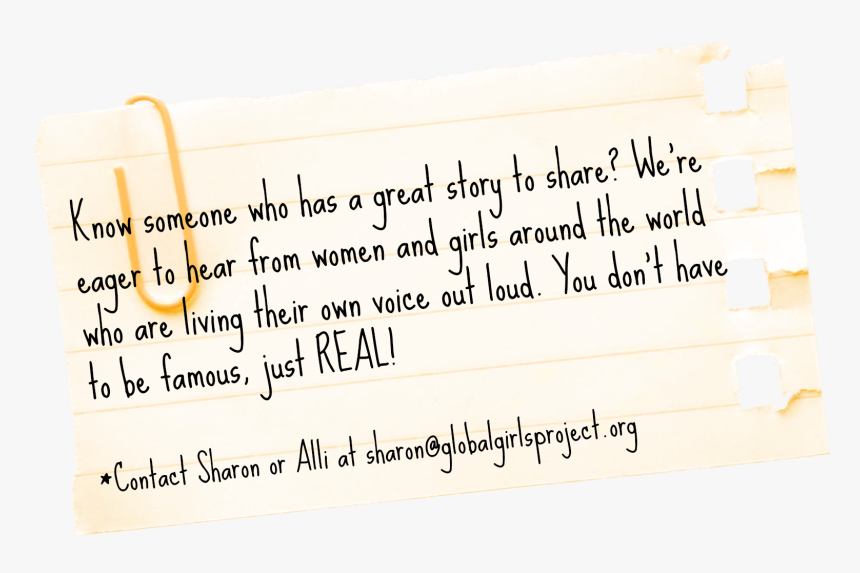 Know someone who has a great story to share? We're
eager to hear from women and girls around the world
who are living their own voice out loud. You don't have
to be famous, just REAL!
*Contact Sharon or Alli at sharon@globalgirlsproject.org